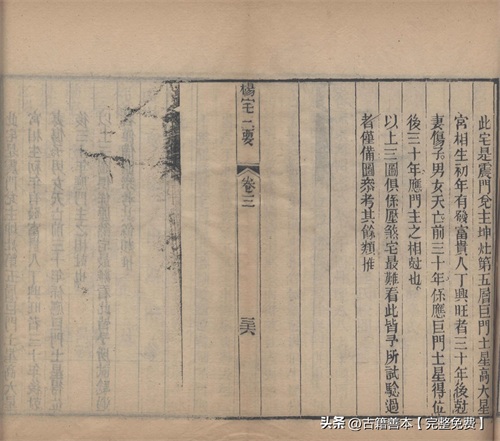 此宅是震門兊主坤灶第五層巨門土星高大星
宮相生初年有發富貴人丁興旺者三十年後尅
妻傷子男女夭亡前三十年係應巨門土星得位
後三十年應門主之相尅也
以上三圖俱係壓煞宅最難看此皆予所試驗過
者僅備圖叅考其餘類推
陽宅三要
卷三
三六
头条 @古籍善本【完整免费】